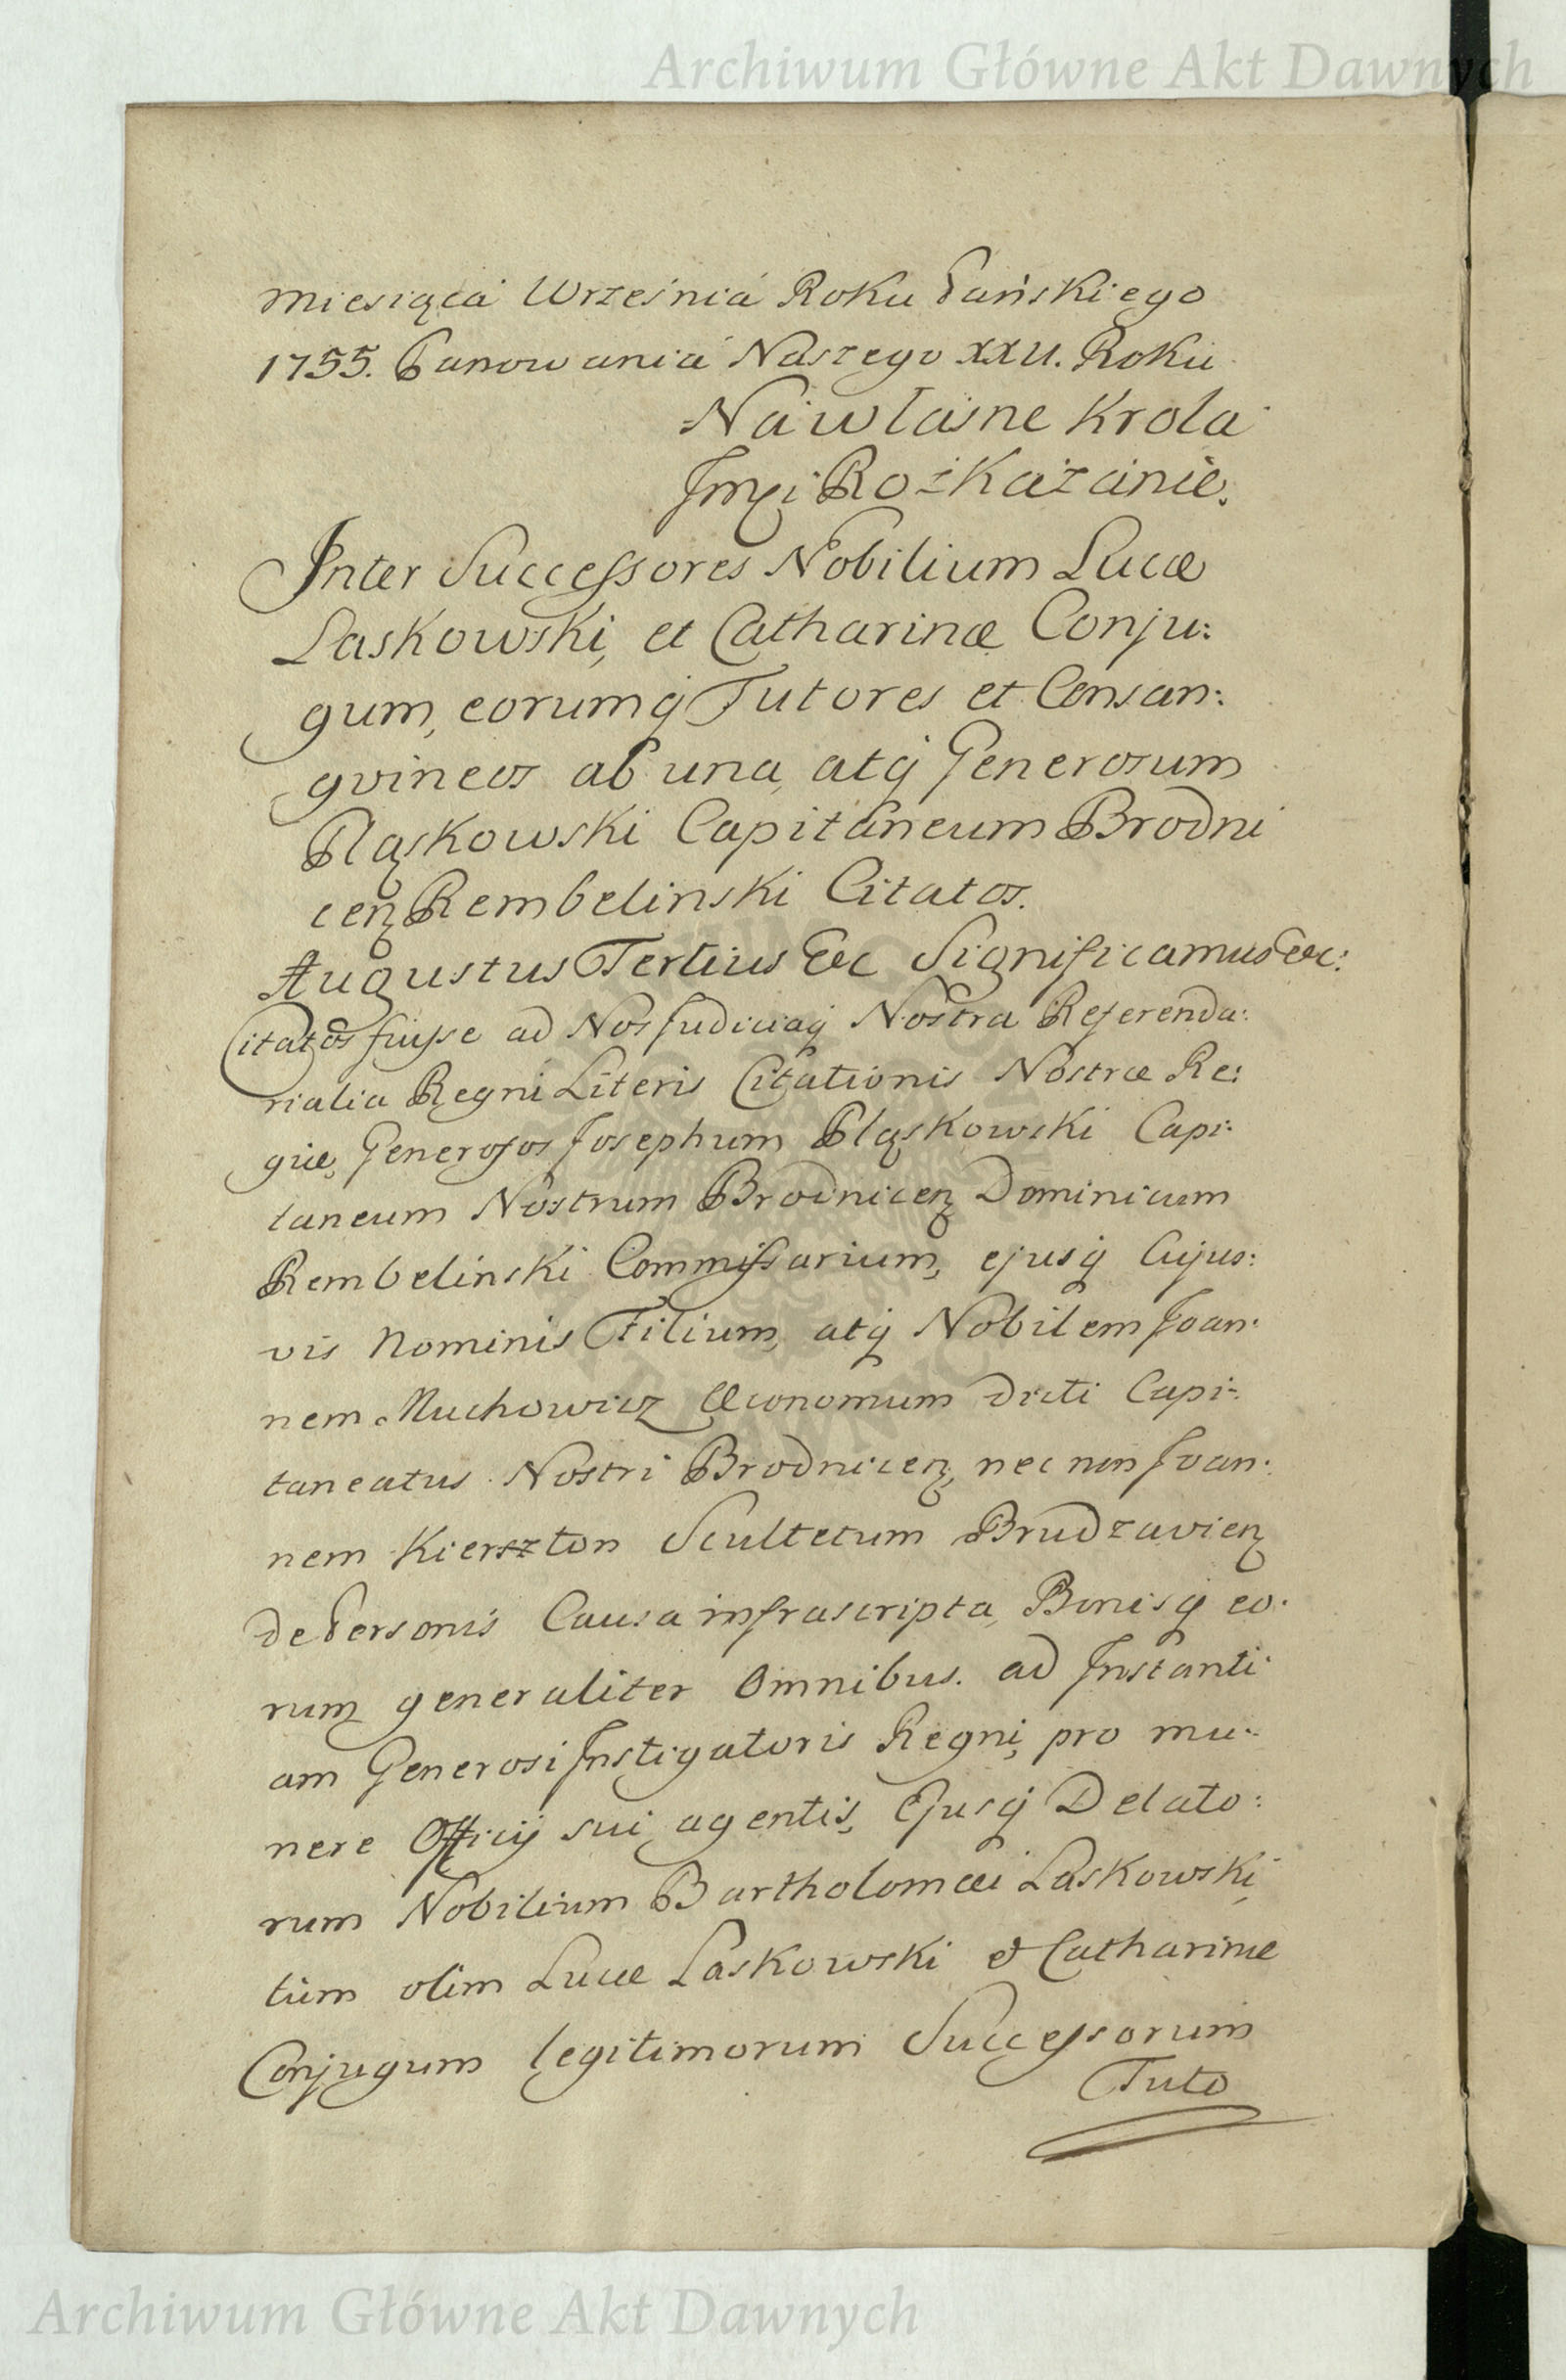 Archiwum Główne Akt Dawnych
miesiąca Wrześnią Roku Pańskiego
1755. Panowania Naszego XXII. Roku
Na własne Krola
Jmci Rozkazanie.
Inter Successores Nobilium Lucæ
Laskowski, et Catharinæ Conju:
gum, eorumq Tutores et Consan:
gvineos ab una, atq Generosum
Pląskowski Capitaneum Brodni
cen Rembelinski Citatos.
Augustus Tertius &c Significamus &c:
Citatos fuisse ad Nos Judiciaq Nostra Referenda:
rialia Regni Literis Citationis Nostræ Re:
giæ, Generosos Josephum Pląskowski Capi:
taneum Nostrum Brodnicen Dominicum
Rembelinski Commissarium, ejusq Cujus:
vis Nominis Filium, atq Nobilem Joan:
nem Muchowicz Œconomum dicti Capi:
taneatus Nostri Brodnicen, nec non Joan:
nem Kierszton Scultetum Brudzavien
de Personis Causa infrascripta, Bonisq eo:
rum generaliter Omnibus. ad Instanti
am Generosi Instigatoris Regni, pro mu:
nere Officij sui agentis, Ejusq Delato:
rum Nobilium Bartholomæi Laskowski,
tum olim Lucæ Laskowski et Catharinæ
Conjugum legitimorum Successorum
Tuto
Archiwum Główne Akt Dawnych